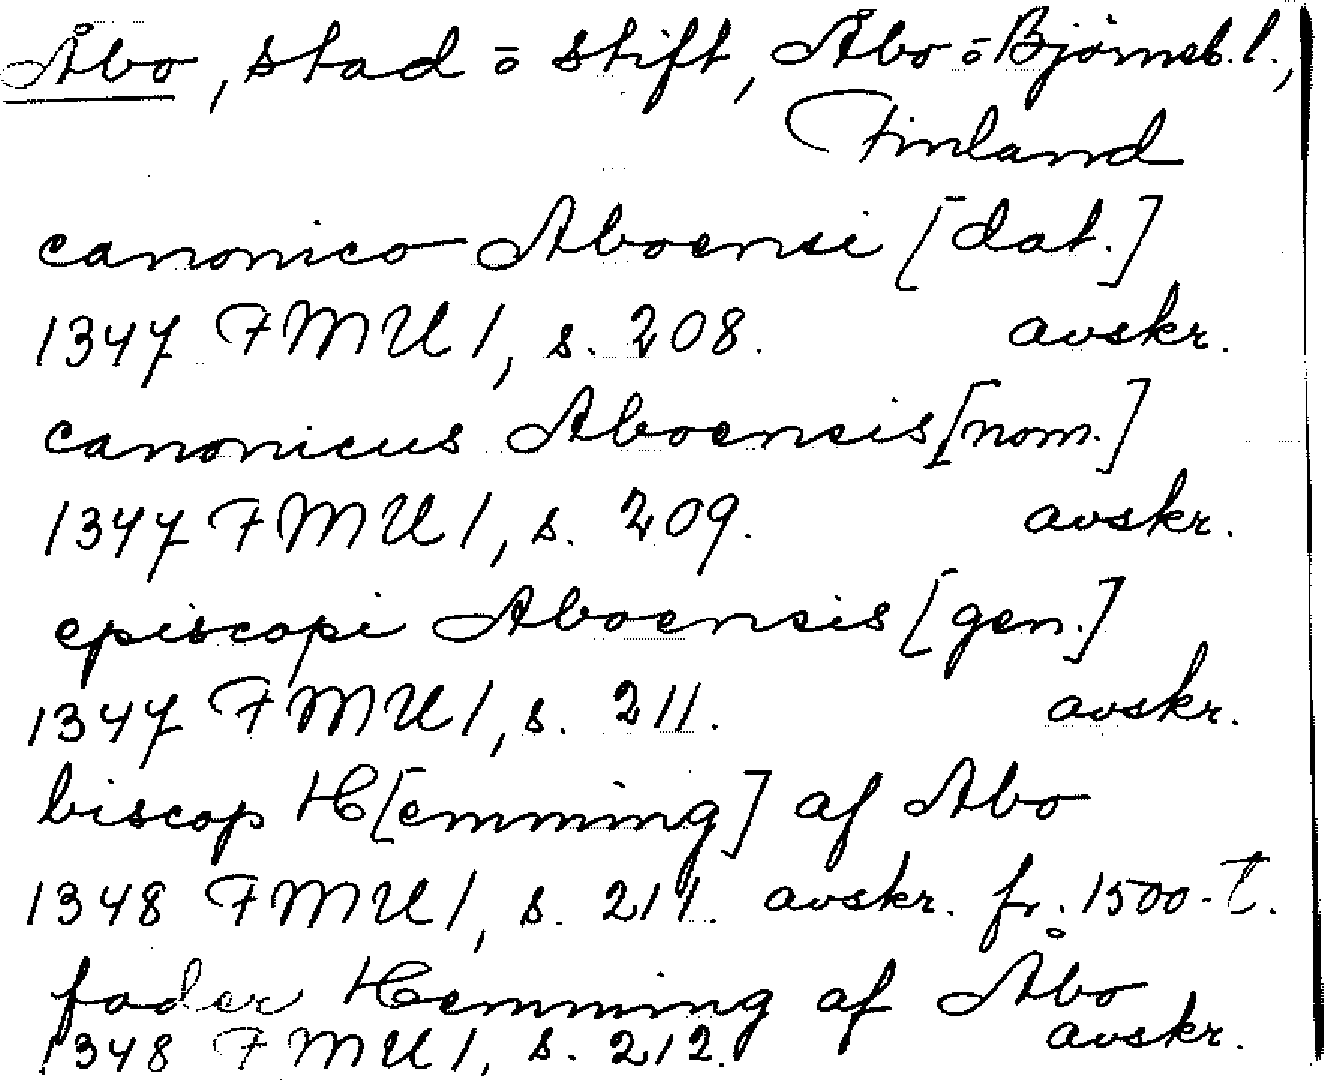 Åbo, stad o stift, Åbo o Björneb. l.,
Finland
canonico Aboensi [dat.]
1347 FMU 1, s. 208. avskr.
canonicus Aboensis [nom.]
1347 FMU 1, s. 209. avskr.
episcopi Aboensis [gen.]
1347 FMU 1, s. 211. avskr.
biscop H[emming] af Abo
1348 FMU 1, s. 214. avskr. fr. 1500-t.
fader Hemming af Åbo
1348 FMU 1, s. 212. avskr.